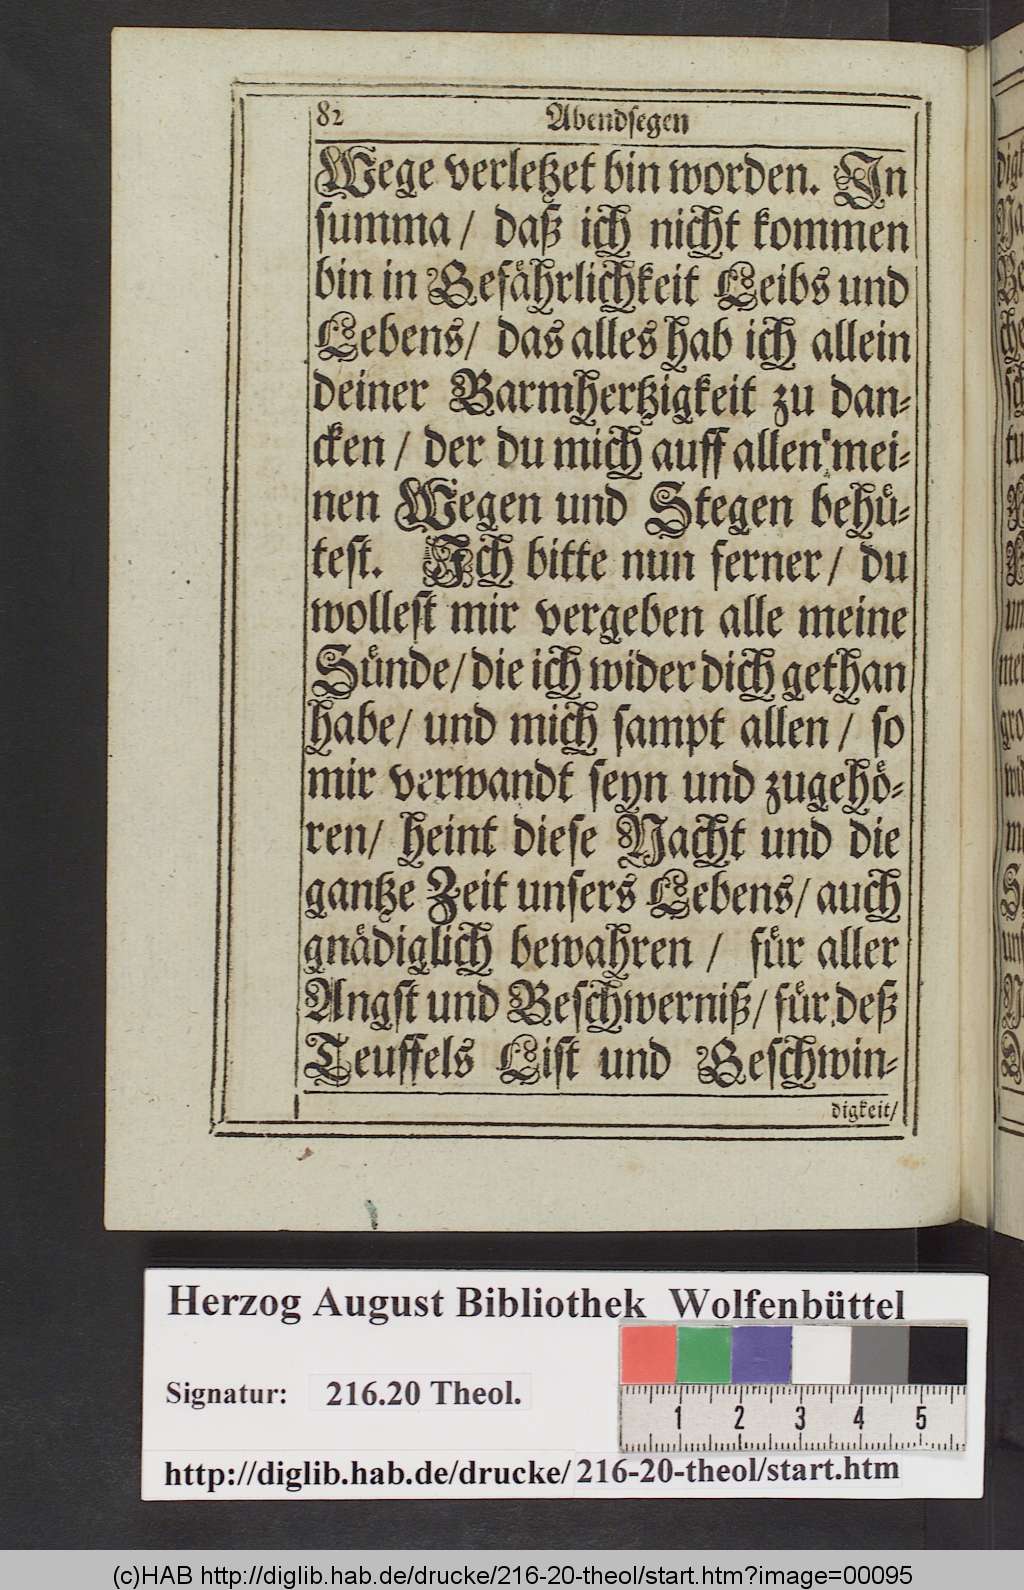 82 Abendsegen
Wege verletzet bin worden. In
summa / daß ich nicht kommen
bin in Gefährlichkeit Leibs und
Lebens / das alles hab ich allein
deiner Barmhertzigkeit zu dan-
cken / der du mich auff allen mei-
nen Wegen und Stegen behü-
test. Ich bitte nun ferner / du
wollest mir vergeben alle meine
Sünde / die ich wider dich gethan
habe / und mich sampt allen / so
mir verwandt seyn und zugehö-
ren / heint diese Nacht und die
gantze Zeit unsers Lebens / auch
gnädiglich bewahren / für aller
Angst und Beschwerniß / für deß
Teuffels List und Geschwin-
digkeit /
Herzog August Bibliothek Wolfenbüttel
Signatur: 216.20 Theol.
1 2 3 4 5
http://diglib.hab.de/drucke/216-20-theol/start.htm
(c)HAB http://diglib.hab.de/drucke/216-20-theol/start.htm?image=00095